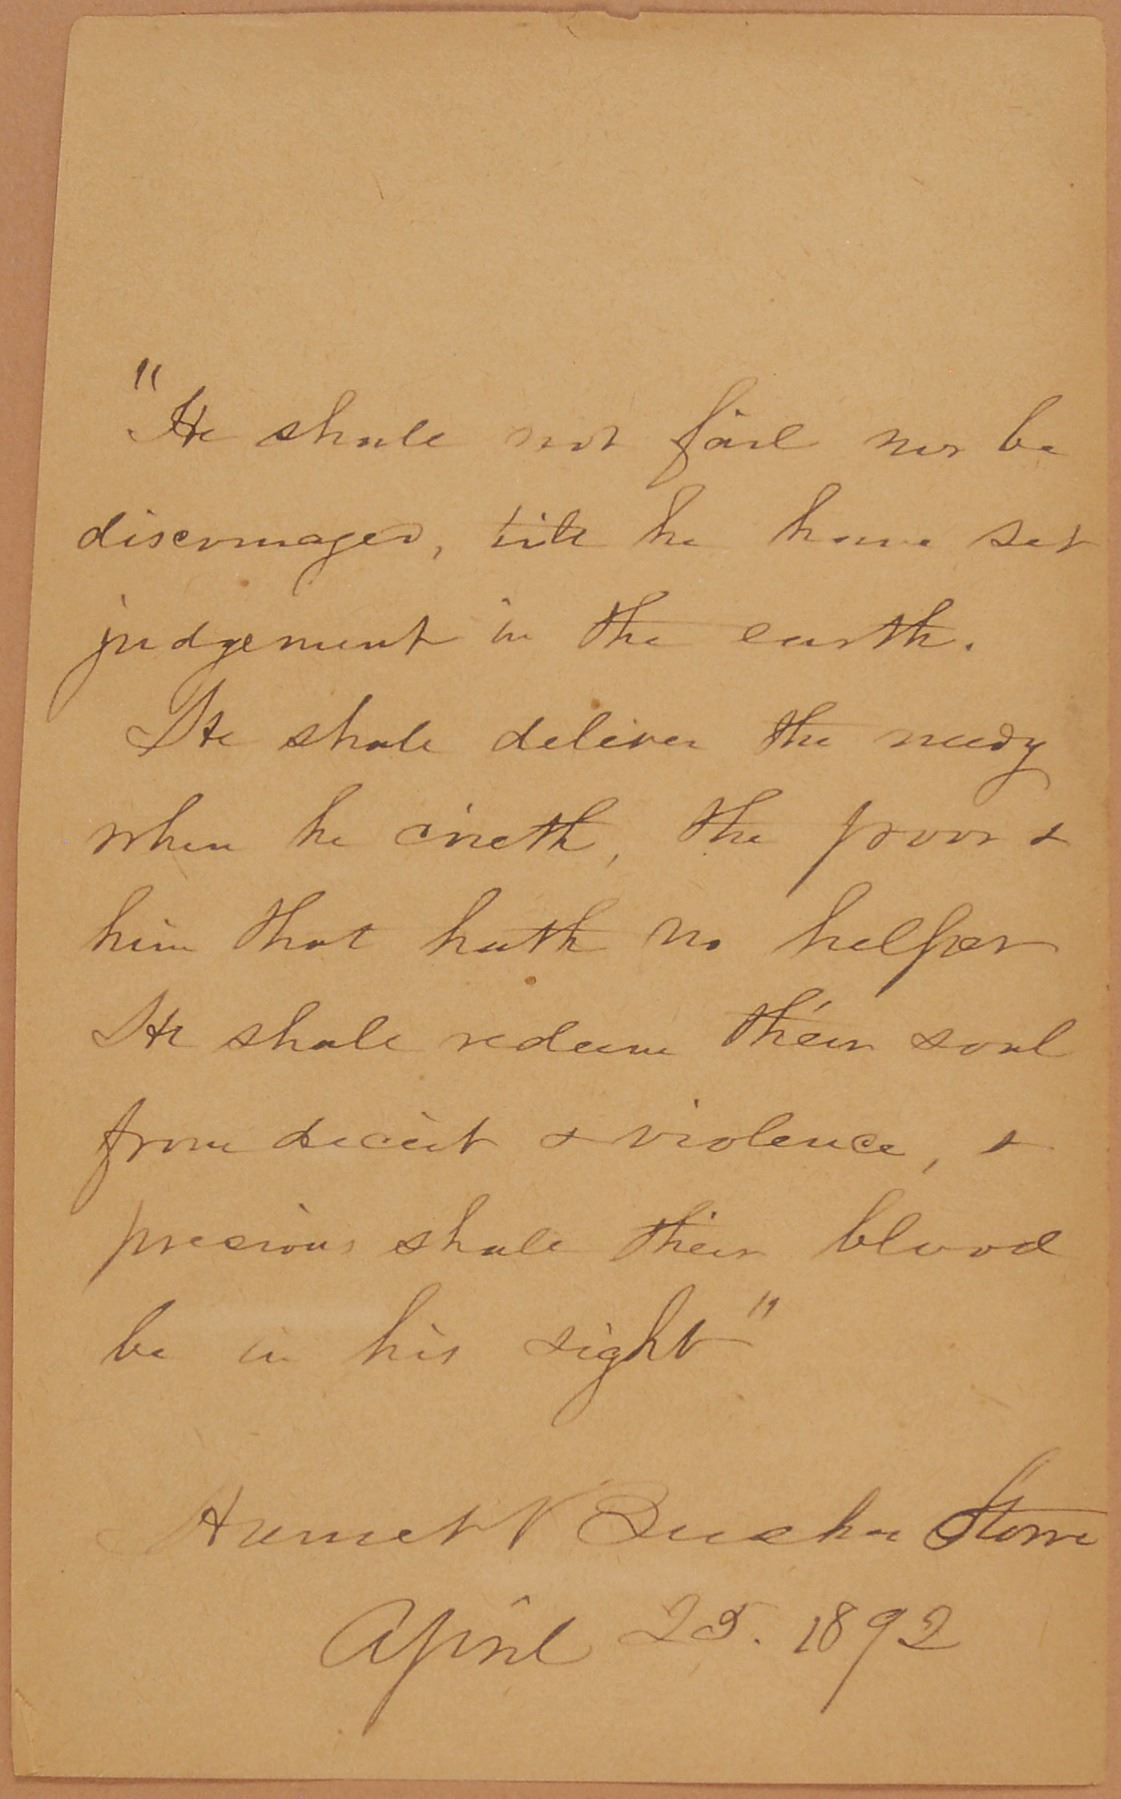 "He shall not fail nor be
discouraged, till he have set
judgement in the earth.
He shall deliver the needy
when he crieth, the poor &
him that hath no helper
He shall redeem their soul
from deceit & violence, &
precious shall their blood
be in his sight"
Harriet Beecher Stowe
April 25. 1892